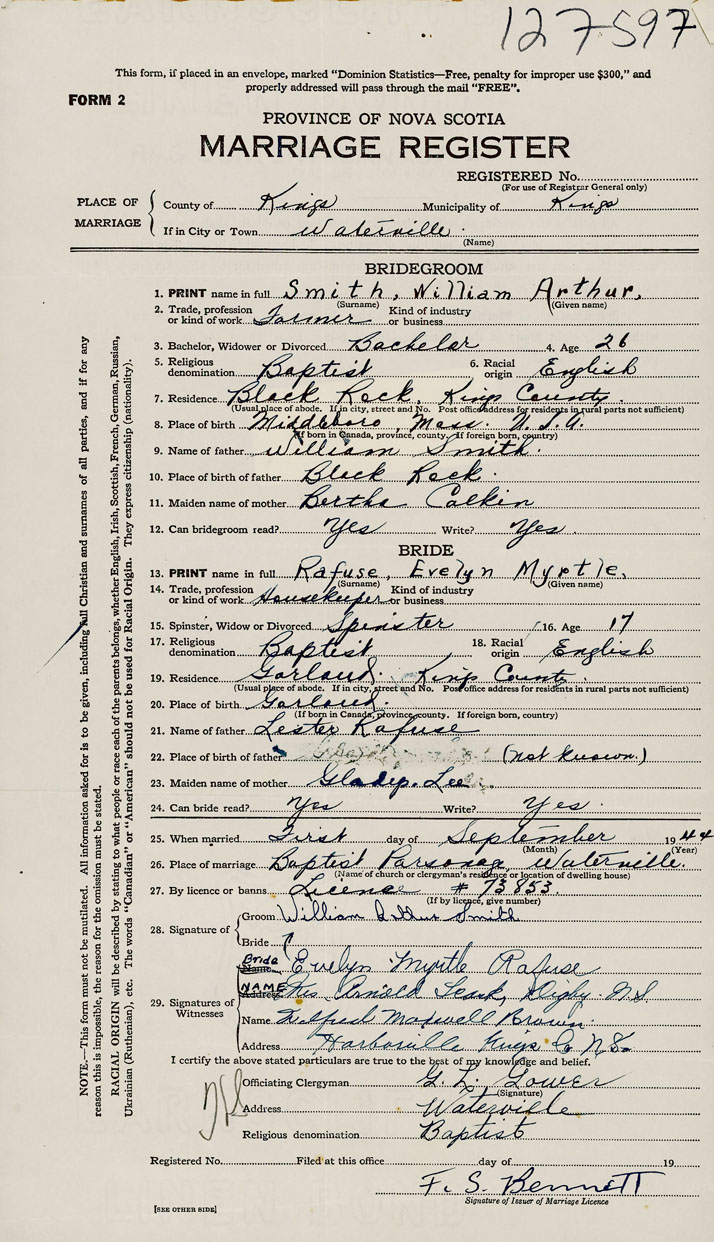 127597
This form, if placed in an envelope, marked “Dominion Statistics—Free, penalty for improper use $300,” and
properly addressed will pass through the mail “FREE”.
FORM 2
PROVINCE OF NOVA SCOTIA
MARRIAGE REGISTER
REGISTERED No.
(For use of Registrar General only)
PLACE OF MARRIAGE
County of Kings Municipality of Kings
If in City or Town Waterville
(Name)
BRIDEGROOM
1. PRINT name in full Smith, William Arthur.
(Surname) (Given name)
2. Trade, profession or kind of work Farmer Kind of industry or business
3. Bachelor, Widower or Divorced Bachelor 4. Age 26
5. Religious denomination Baptist 6. Racial origin English
7. Residence Black Rock, Kings County.
(Usual place of abode. If in city, street and No. Post office address for residents in rural parts not sufficient)
8. Place of birth Middleboro, Mass. U.S.A.
(If born in Canada, province, county. If foreign born, country)
9. Name of father William Smith.
10. Place of birth of father Black Rock.
11. Maiden name of mother Bertha Calkin
12. Can bridegroom read? Yes Write? Yes.
BRIDE
13. PRINT name in full Rafuse, Evelyn Myrtle.
(Surname) (Given name)
14. Trade, profession or kind of work Housekeeper Kind of industry or business
15. Spinster, Widow or Divorced Spinster 16. Age 17
17. Religious denomination Baptist 18. Racial origin English
19. Residence Garland. Kings County.
(Usual place of abode. If in city, street and No. Post office address for residents in rural parts not sufficient)
20. Place of birth Garland.
(If born in Canada, province, county. If foreign born, country)
21. Name of father Lester Rafuse
22. Place of birth of father (not known.)
23. Maiden name of mother Gladys. Lee
24. Can bride read? Yes Write? Yes.
25. When married First day of September 1944
(Month) (Year)
26. Place of marriage Baptist Parsonage, Waterville.
(Name of church or clergyman's residence or location of dwelling house)
27. By licence or banns License # 73853.
(If by licence, give number)
28. Signature of
Groom William Arthur Smith
Bride
Bride Name Evelyn Myrtle Rafuse
29. Signatures of Witnesses
NAME Address Mrs Arnold Digby. N.S.
Name Maxwell Brown.
Address Harborville Kings Co N.S.
I certify the above stated particulars are true to the best of my knowledge and belief.
Officiating Clergyman G. L. Gower
(Signature)
Address Waterville
Religious denomination Baptist
Registered No. Filed at this office day of 19
F. S. Bennett
Signature of Issuer of Marriage Licence
[SEE OTHER SIDE]
NOTE.—This form must not be mutilated. All information asked for is to be given, including full Christian and surnames of all parties, and if for any
reason this is impossible, the reason for the omission must be stated.
RACIAL ORIGIN will be described by stating to what people or race each of the parents belongs, whether English, Irish, Scottish, French, German, Russian,
Ukrainian (Ruthenian), etc. The words “Canadian” or “American” should not be used for Racial Origin. They express citizenship (nationality).